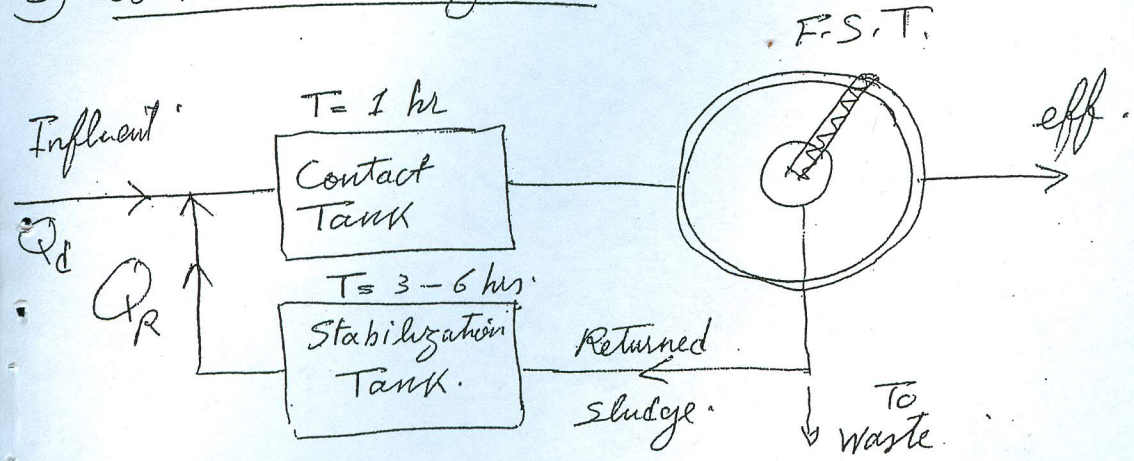 F.S.T.
T= 1 hr
Influent
eff.
Contact
Tank
Qd
QR
T= 3 – 6 hrs.
Stabilization
Tank.
Returned
sludge.
To
waste.